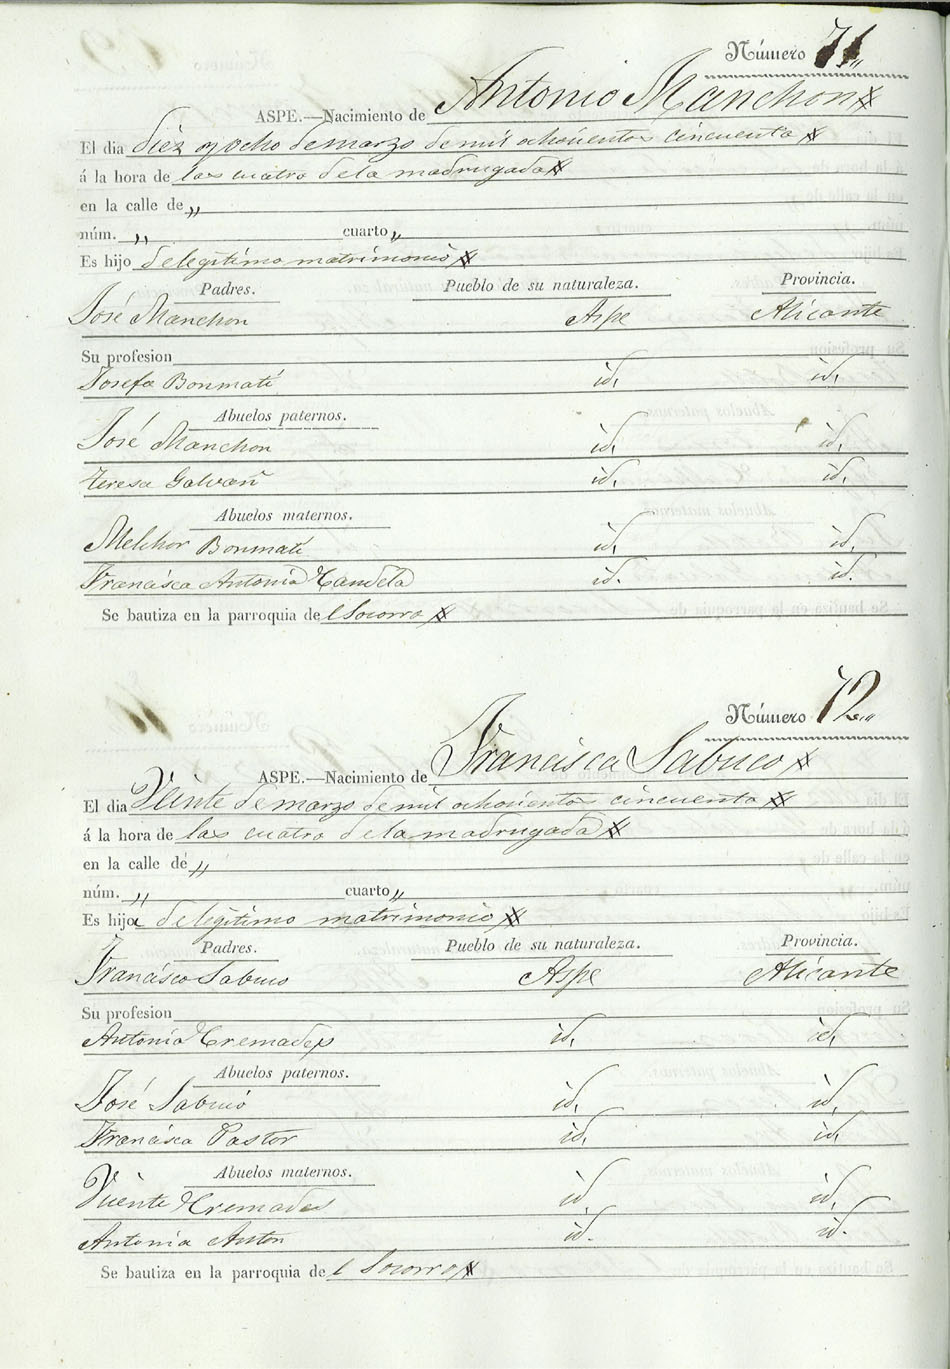 Número 71
ASPE.—Nacimiento de Antonio Manchon
El dia diez y ocho de marzo de mil ochocientos cincuenta
á la hora de las cuatro de la madrugada
en la calle de „
núm. „ cuarto „
Es hijo de legitimo matrimonio
Padres. Pueblo de su naturaleza. Provincia.
José Manchon Aspe Alicante
Su profesion
Josefa Bonmati id. id.
Abuelos paternos.
José Manchon id. id.
Teresa Galvañ id. id.
Abuelos maternos.
Melchor Bonmatí id. id.
Francisca Antonia Candela id. id.
Se bautiza en la parroquia de l Socorro
Número 72
ASPE.—Nacimiento de Francisca Sabuco
El dia Veinte de marzo de mil ochocientos cincuenta
á la hora de las cuatro de la madrugada
en la calle de „
núm. „ cuarto „
Es hija de legitimo matrimonio
Padres. Pueblo de su naturaleza. Provincia.
Francisco Sabuco Aspe Alicante
Su profesion
Antonia Cremades id. id.
Abuelos paternos.
José Sabuco id. id.
Francisca Pastor id. id.
Abuelos maternos.
Vicente Cremades id. id.
Antonia Anton id. id.
Se bautiza en la parroquia de l Socorro